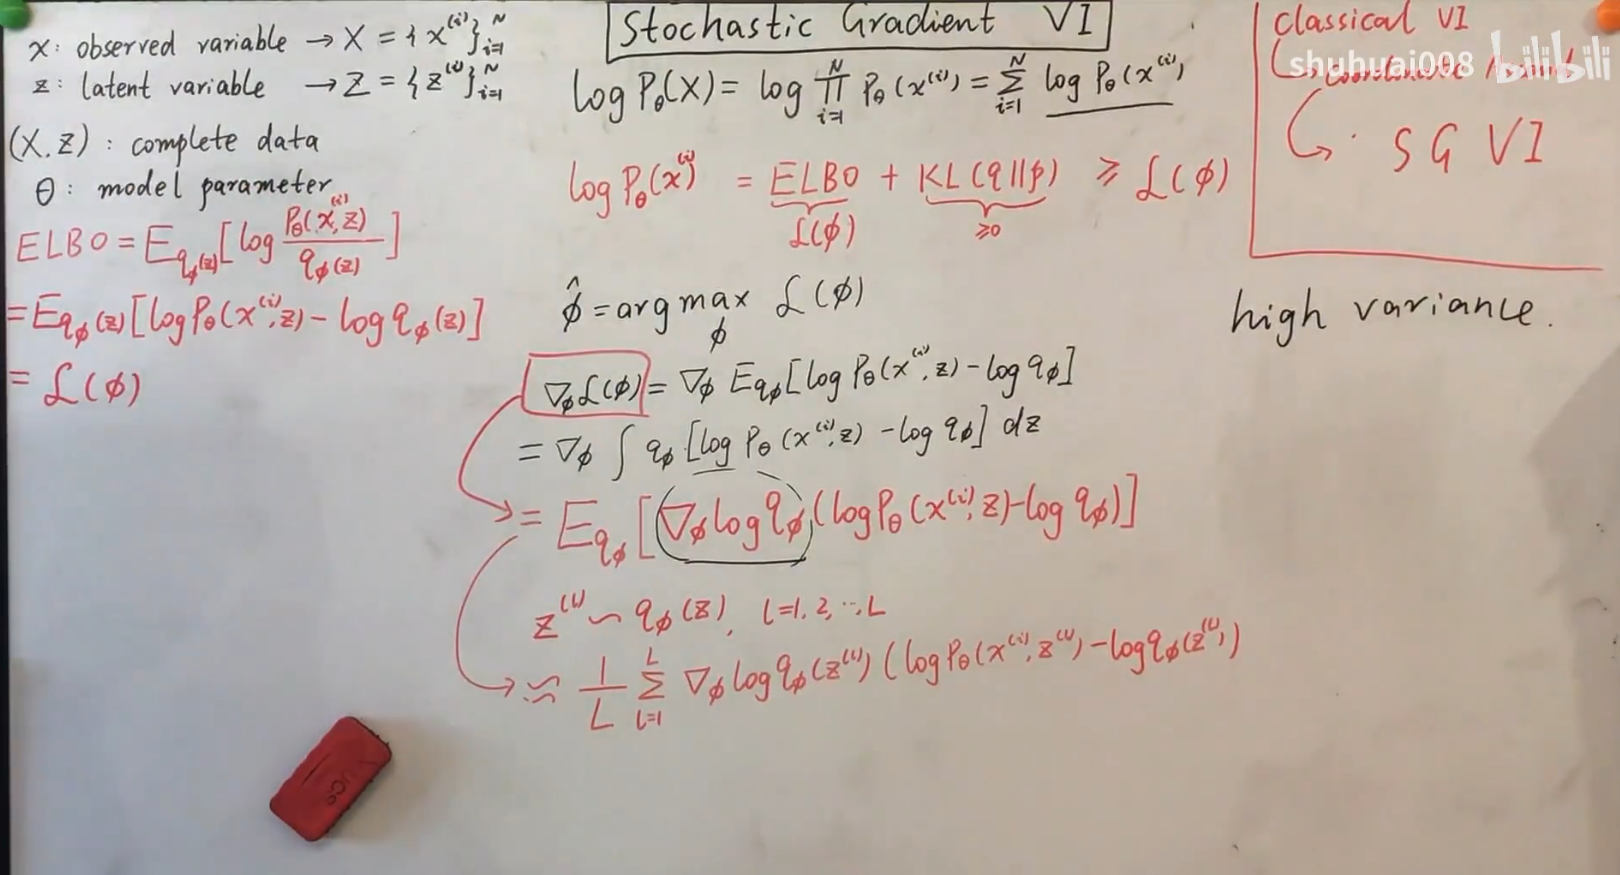 x: observed variable → X = {x^(i)}_{i=1}^N
z: latent variable → Z = {z^(i)}_{i=1}^N
(X, Z): complete data
θ: model parameter
ELBO = E_{q_φ(z)}[log P_θ(x^(i), z) / q_φ(z)]
= E_{q_φ(z)}[log P_θ(x^(i), z) - log q_φ(z)]
= L(φ)
Stochastic Gradient VI
log P_θ(X) = log ∏_{i=1}^N P_θ(x^(i)) = ∑_{i=1}^N log P_θ(x^(i))
log P_θ(x^(i)) = ELBO + KL(q||p) ≥ L(φ)
L(φ) ≥0
φ̂ = arg max_φ L(φ)
∇_φ L(φ) = ∇_φ E_{q_φ}[log P_θ(x^(i), z) - log q_φ]
= ∇_φ ∫ q_φ [log P_θ(x^(i), z) - log q_φ] dz
= E_{q_φ}[∇_φ log q_φ (log P_θ(x^(i), z) - log q_φ)]
z^(l) ~ q_φ(z), l=1, 2, ..., L
≈ 1/L ∑_{l=1}^L ∇_φ log q_φ(z^(l)) (log P_θ(x^(i), z^(l)) - log q_φ(z^(l)))
classical VI
shuhuai008 bilibili
SG VI
high variance.
JCo